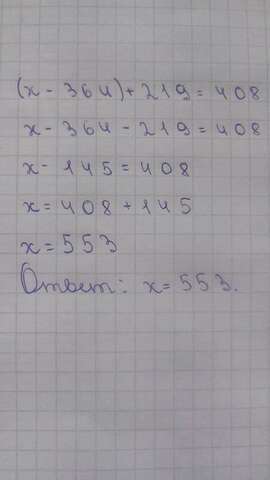 (x - 364) + 219 = 408
x - 364 - 219 = 408
x - 145 = 408
x = 408 + 145
x = 553
Ответ: x = 553.